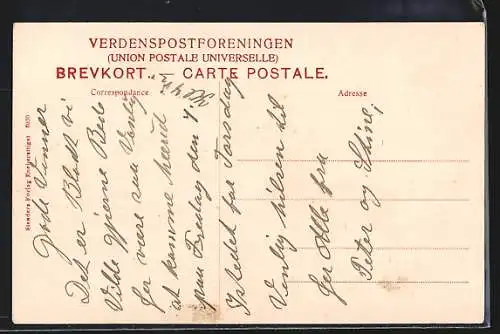 VERDENSPOSTFORENINGEN
(UNION POSTALE UNIVERSELLE)
BREVKORT. — CARTE POSTALE.
Correspondance
Adresse
Stenders Forlag Eneberettiget
Gode Venner
Det er Blodt vi
Vilde gjerne Bede
Jer være saa Venlig
at komme herud
paa Fredag den 4.
Istedet for Torsdag
Venlig hilsen til
Jer Alle fra
Peter og Stine